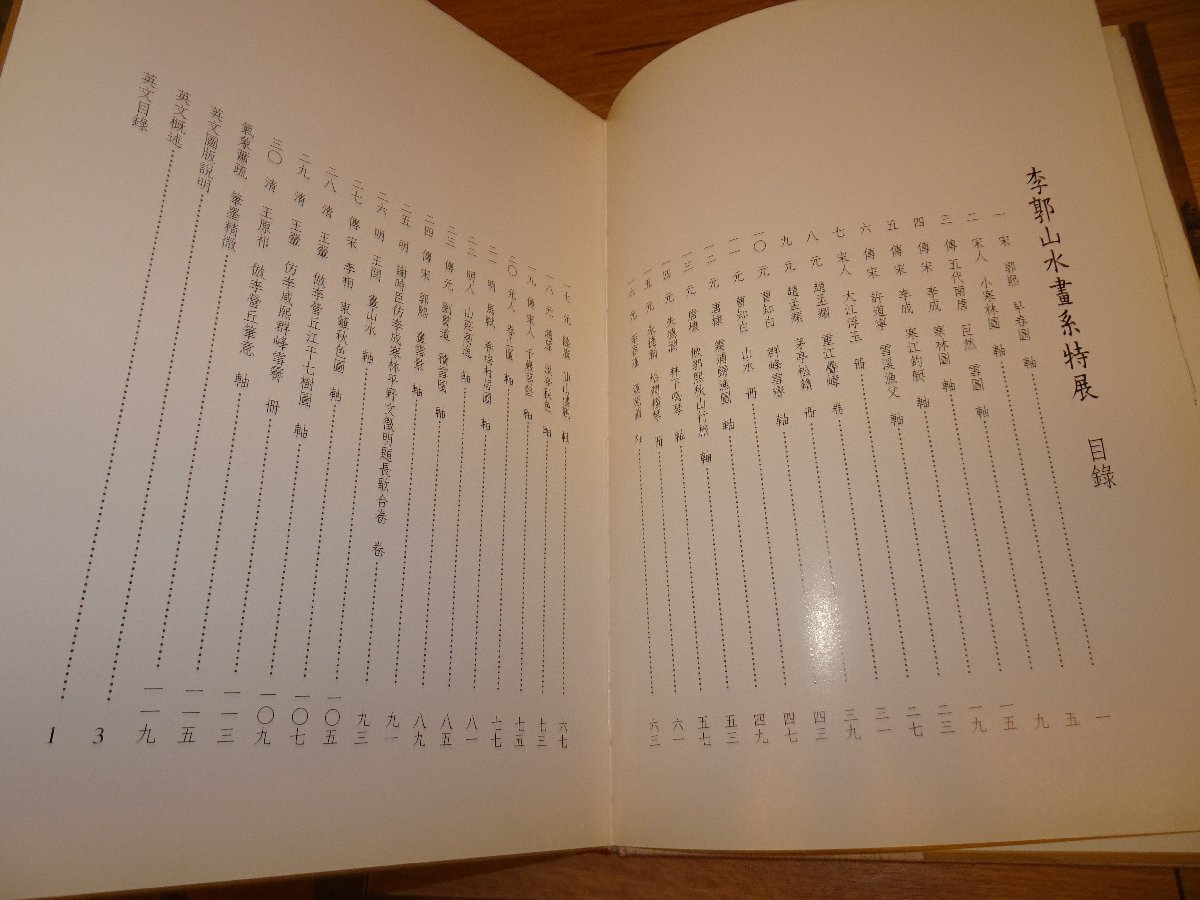 李郭山水畫系特展　目錄
一　宋　郭熙　早春圖　軸……一
二　宋人　小寒林圖　軸……五
三　傳五代南唐　巨然　雪圖　軸……九
四　傳宋　李成　寒林圖　軸……一五
五　傳宋　李成　寒江釣艇　軸……一九
六　傳宋　許道寧　雪溪漁父　軸……二三
七　宋人　大江浮玉　冊……二七
八　元　趙孟頫　重江疊嶂　卷……三一
九　元　趙孟頫　茅亭松籟　冊……三九
一〇　元　曹知白　群峰雪霽　軸……四三
一一　元　曹知白　山水　冊……四七
一二　元　唐棣　霜浦歸漁圖　軸……四九
一三　元　唐棣　倣郭熙秋山行旅　軸……五三
一四　元　朱德潤　林下鳴琴　軸……五七
一五　元　朱德潤　松澗橫琴　冊……六一
一六　元　軸……六三
一七　元　軸……六七
一八　元　軸……七三
一九　傳宋人　軸……七五
二〇　元人　軸……七七
二一　明　軸……八一
二二　明人　軸……八五
二三　傳元　劉貫道　積雪圖　軸……八九
二四　傳宋　郭熙　軸……九一
二五　明　謝時臣仿李成寒林平野文徵明題長歌合卷　卷……九三
二六　明　王問　山水　軸……一〇五
二七　傳宋　李相　東籬秋色圖　軸……一〇七
二八　清　王翬　倣李營丘江干七樹圖　軸……一〇九
二九　清　王翬　仿李咸熙群峰雪霽　冊……一一三
三〇　清　王原祁　倣李營丘筆意　軸……一一五
氣象蕭疏　筆墨精微……一一九
英文圖版說明
英文概述……3
英文目錄……1